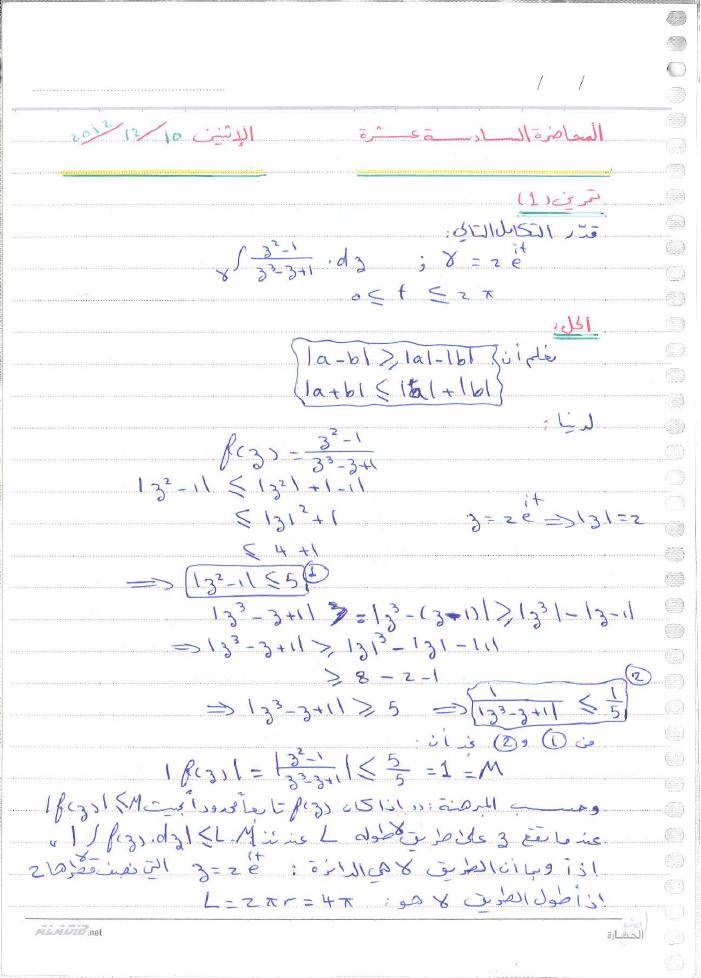 / /
المحاضرة السادسة عشرة الإثنين 10/12/2012
تمرين (1)
قدّر التكامل التالي:
∫γ (z²-1)/(z³-z+1) . dz ; γ = 2e^{it}
0 ≤ t ≤ 2π
الحل:
نعلم أن |a-b| ≥ |a|-|b|
|a+b| ≤ |a|+|b|
لدينا:
f(z) = (z²-1)/(z³-z+1)
|z²-1| ≤ |z²|+|-1|
≤ |z|²+1 z = 2e^{it} ⇒ |z|=2
≤ 4+1
⇒ |z²-1| ≤ 5 ①
|z³-z+1| = |z³-(z-1)| ≥ |z³|-|z-1|
⇒ |z³-z+1| ≥ |z|³-|z|-|1|
≥ 8-2-1
⇒ |z³-z+1| ≥ 5 ⇒ 1/|z³-z+1| ≤ 1/5 ②
من ① و ② نجد أن:
|f(z)| = |(z²-1)/(z³-z+1)| ≤ 5/5 = 1 = M
وحسب المبرهنة: "إذا كان f(z) تابعاً محدوداً بحيث |f(z)| ≤ M
عندما تقع z على طريق γ طوله L عندئذ |∫f(z).dz| ≤ L.M"
إذاً وبما أن الطريق γ هي الدائرة: z = 2e^{it} التي نصف قطرها 2
إذاً طول الطريق γ هو: L = 2πr = 4π
ALADIB.net
الحضارة